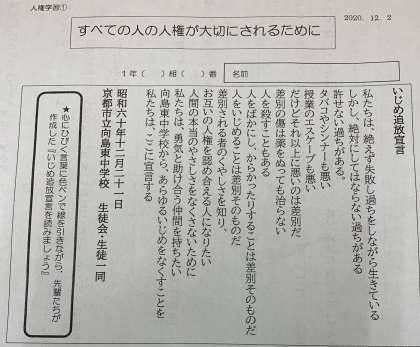 人権学習①
2020.12.2
すべての人の人権が大切にされるために
1年( )組( )番 名前
いじめ追放宣言
私たちは、絶えず失敗し過ちをしながら生きている
しかし、絶対にしてはならない過ちがある
許せない過ちがある。
タバコやシンナーも悪い
授業のエスケープも悪い、
だけどそれ以上に悪いのは差別だ
差別の傷は薬をぬっても治らない
人を殺すこともある
人をばかにし、からかったりすることは差別そのものだ
人をいじめることは差別そのものだ
差別される者のくやしさを知り、
お互いの人権を認め合える人になりたい
人間の本当のやさしさをなくさないために
私たちは、勇気と助け合う仲間を持ちたい
向島東中学校から、あらゆるいじめをなくすことを
私たちは、ここに宣言する
昭和六十年十二月二十一日
京都市立向島東中学校 生徒会・生徒一同
★心にひびく言葉に色ペンで線を引きながら、先輩たちが
作成した『いじめ追放宣言を読みましょう』